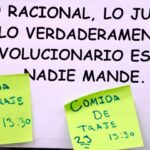 RACIONAL, LO JU
LO VERDADERAMEN
VOLUCIONARIO ES
NADIE MANDE.
DA
TRAJE
13:30
COMIDA
DE
TRAJE
23
13:30